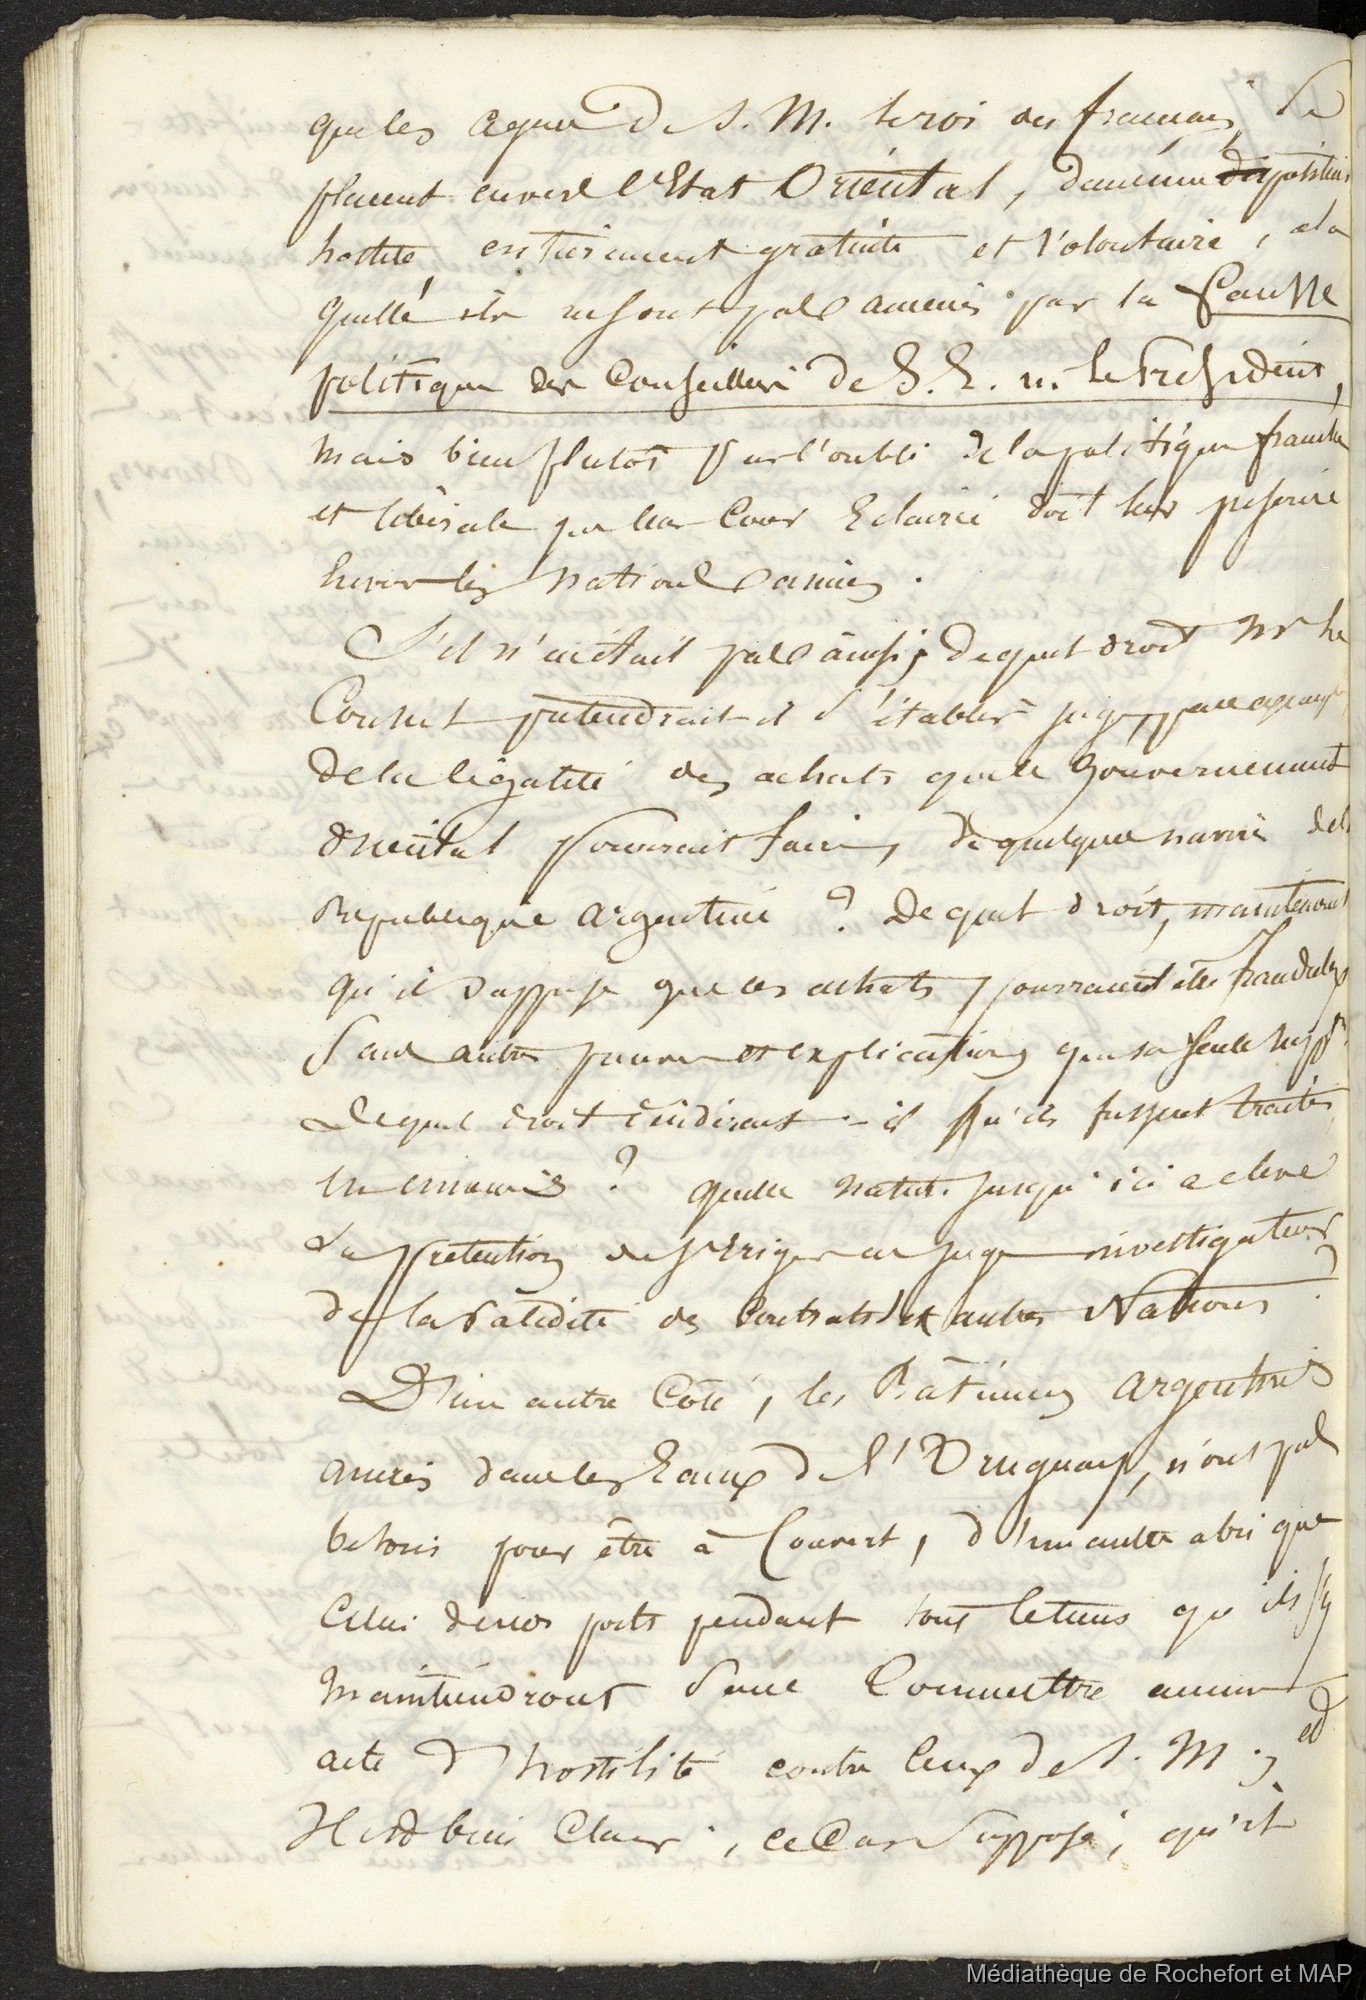 que les agens de S. M. le roi des français, se
placent envers l'Etat Oriental, dans une disposition
hostile, entièrement gratuite et volontaire, a la
quelle ils ne sont pas amenés par la fausse
politique des Conseillers de S. E. M. le Président,
mais bien plutôt par l'oubli de la politique franche
et libérale que leur Cour Eclairée doit leur prescrire
envers les nations amies.
S'il n'en était pas ainsi, de quel droit Mr le
Consul prétendrait-il s'établir juge, par
de la légalité des achats que le Gouvernement
oriental pourrait faire, de quelques navires de la
République argentine ? De quel droit, maintenant
qu'il suppose que ces achats pourraient être frauduleux
sans autre preuve et explication que sa seule supp.on
De quel droit dirait-il qu'ils fussent traités
en ennemis ? quelle nation jusqu'ici a élevé
la prétention de s'ériger en juge investigateur
de la validité des Contrats des autres Nations
D'un autre Côté, les Bâtimens argentins
ancrés dans les Eaux de l'Uruguay, n'ont pas
besoin pour être à Couvert, d'un autre abri que
celui de nos ports pendant tout le tems qu'ils s'y
maintiendront sans Commettre aucun
acte d'hostilité contre Ceux de S. M. ; et
Il est bien Clair, ce Cas supposé, qu'il
Médiathèque de Rochefort et MAP